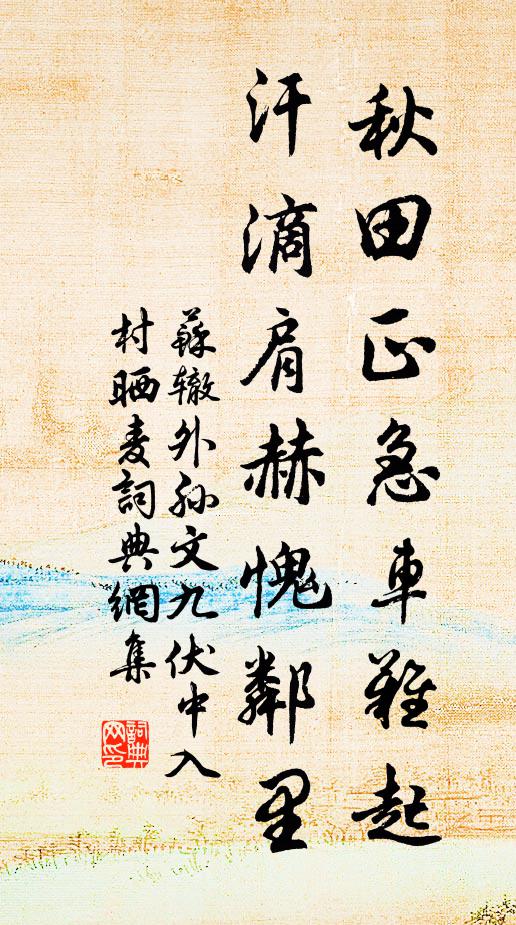 秋田正急車難起
汗滴肩赫愧鄰里
蘇辙外孙文九伏中入
村晒麦詞典網集
詞典
网印